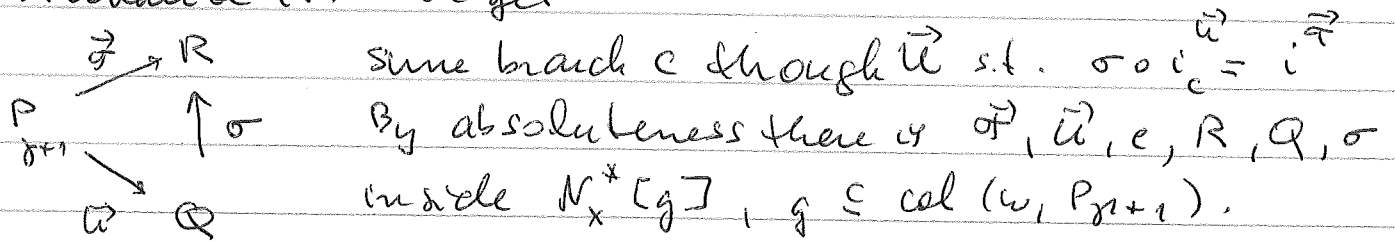 𝒯⃗ R some branch c through 𝒰⃗ s.t. σ ∘ i_c^𝒰⃗ = i^𝒯⃗
P_{γ+1} ↑ σ By absoluteness there is 𝒯⃗, 𝒰⃗, c, R, Q, σ
𝒰⃗ Q inside N_x^*[g], g ⊆ col(ω, P_{γ+1}).